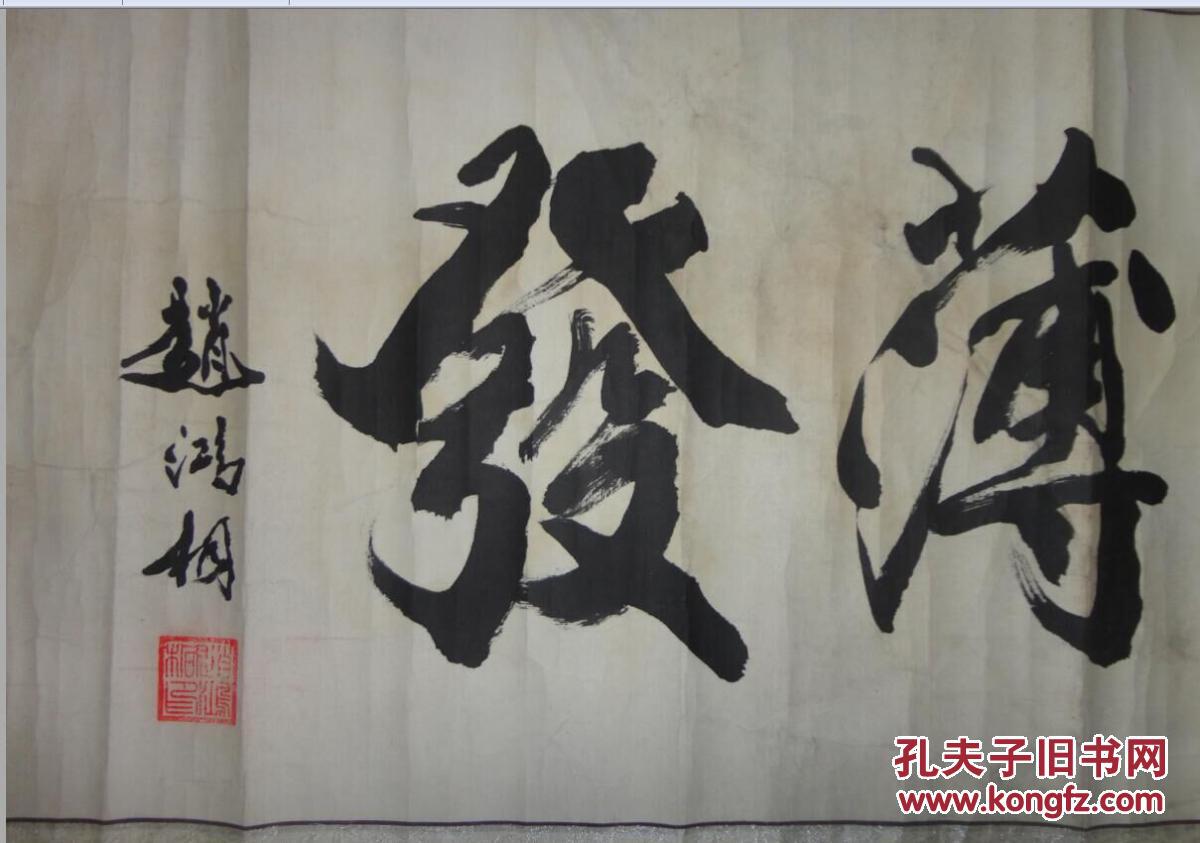 薄發
趙鴻桐
趙鴻桐印
孔夫子旧书网
www.kongfz.com